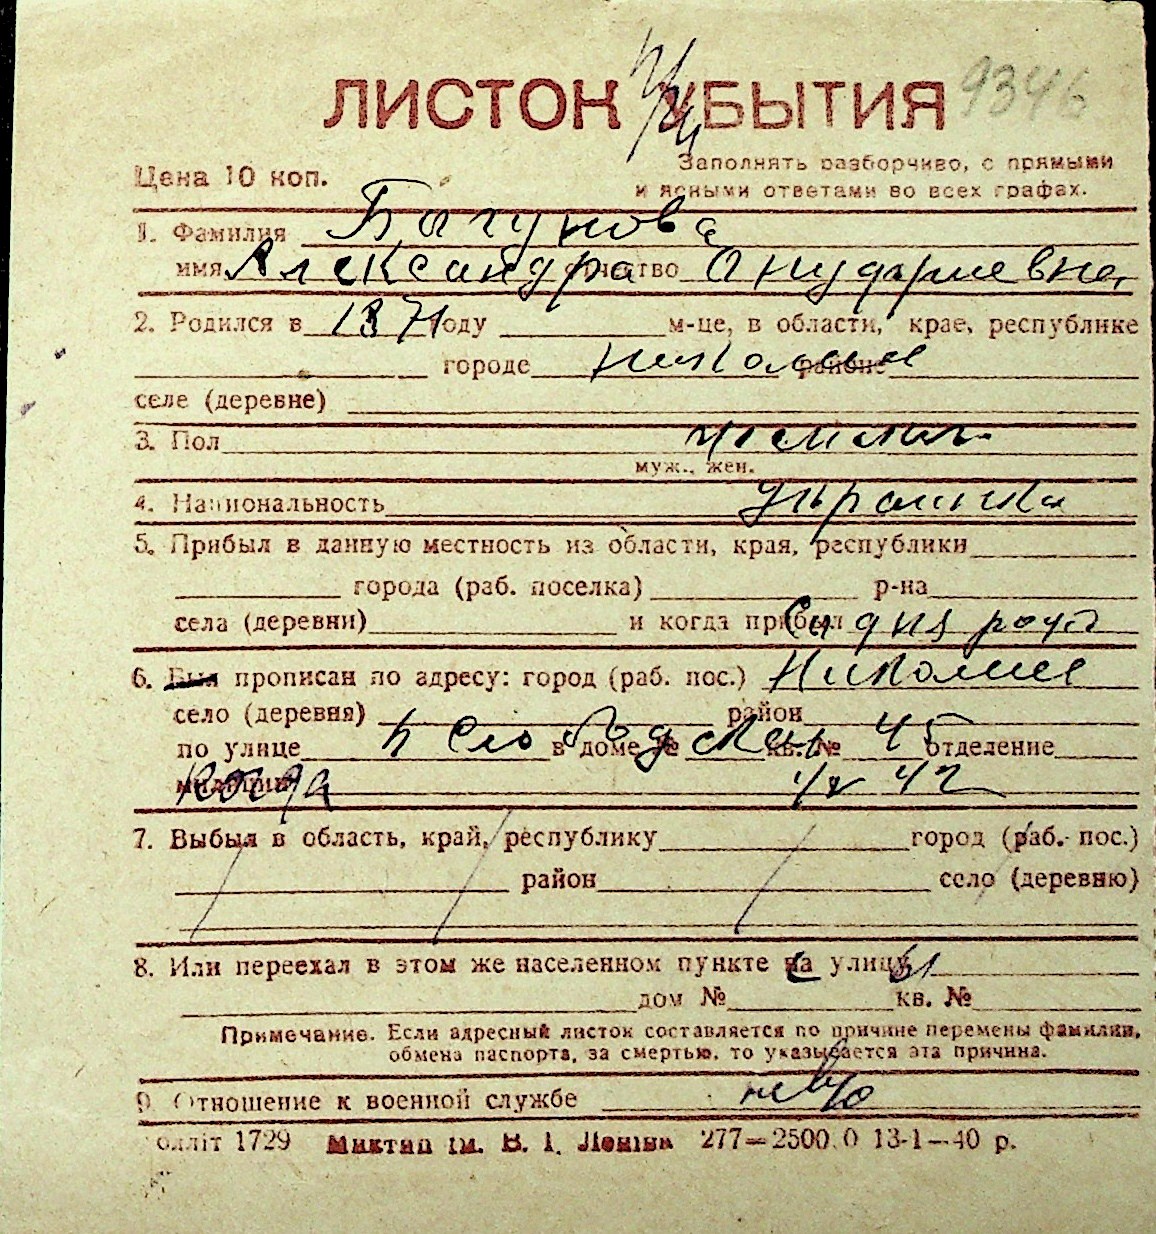 ЛИСТОК УБЫТИЯ 9346
Цена 10 коп.
Заполнять разборчиво, с прямыми
и ясными ответами во всех графах.
1. Фамилия Багунова
имя Александра отчество
2. Родился в 1871 году м-це, в области, крае, республике
городе Николаеве районе
селе (деревне)
3. Пол
муж., жен.
4. Национальность Украинка
5. Прибыл в данную местность из области, края, республики
города (раб. поселка) р-на
села (деревни) и когда прибыл Со дня рожд
6. Был прописан по адресу: город (раб. пос.) Николаев
село (деревня) район
по улице Слободская в доме № кв. № 45 отделение
милиции кв 42
7. Выбыл в область, край, республику город (раб. пос.)
район село (деревню)
8. Или переехал в этом же населенном пункте на улицу
дом № кв. №
Примечание. Если адресный листок составляется по причине перемены фамилии,
обмена паспорта, за смертью, то указывается эта причина.
9. Отношение к военной службе нев/о
олліт 1729 Миктип ім. В. І. Леніна 277—2500.0 13-1—40 р.